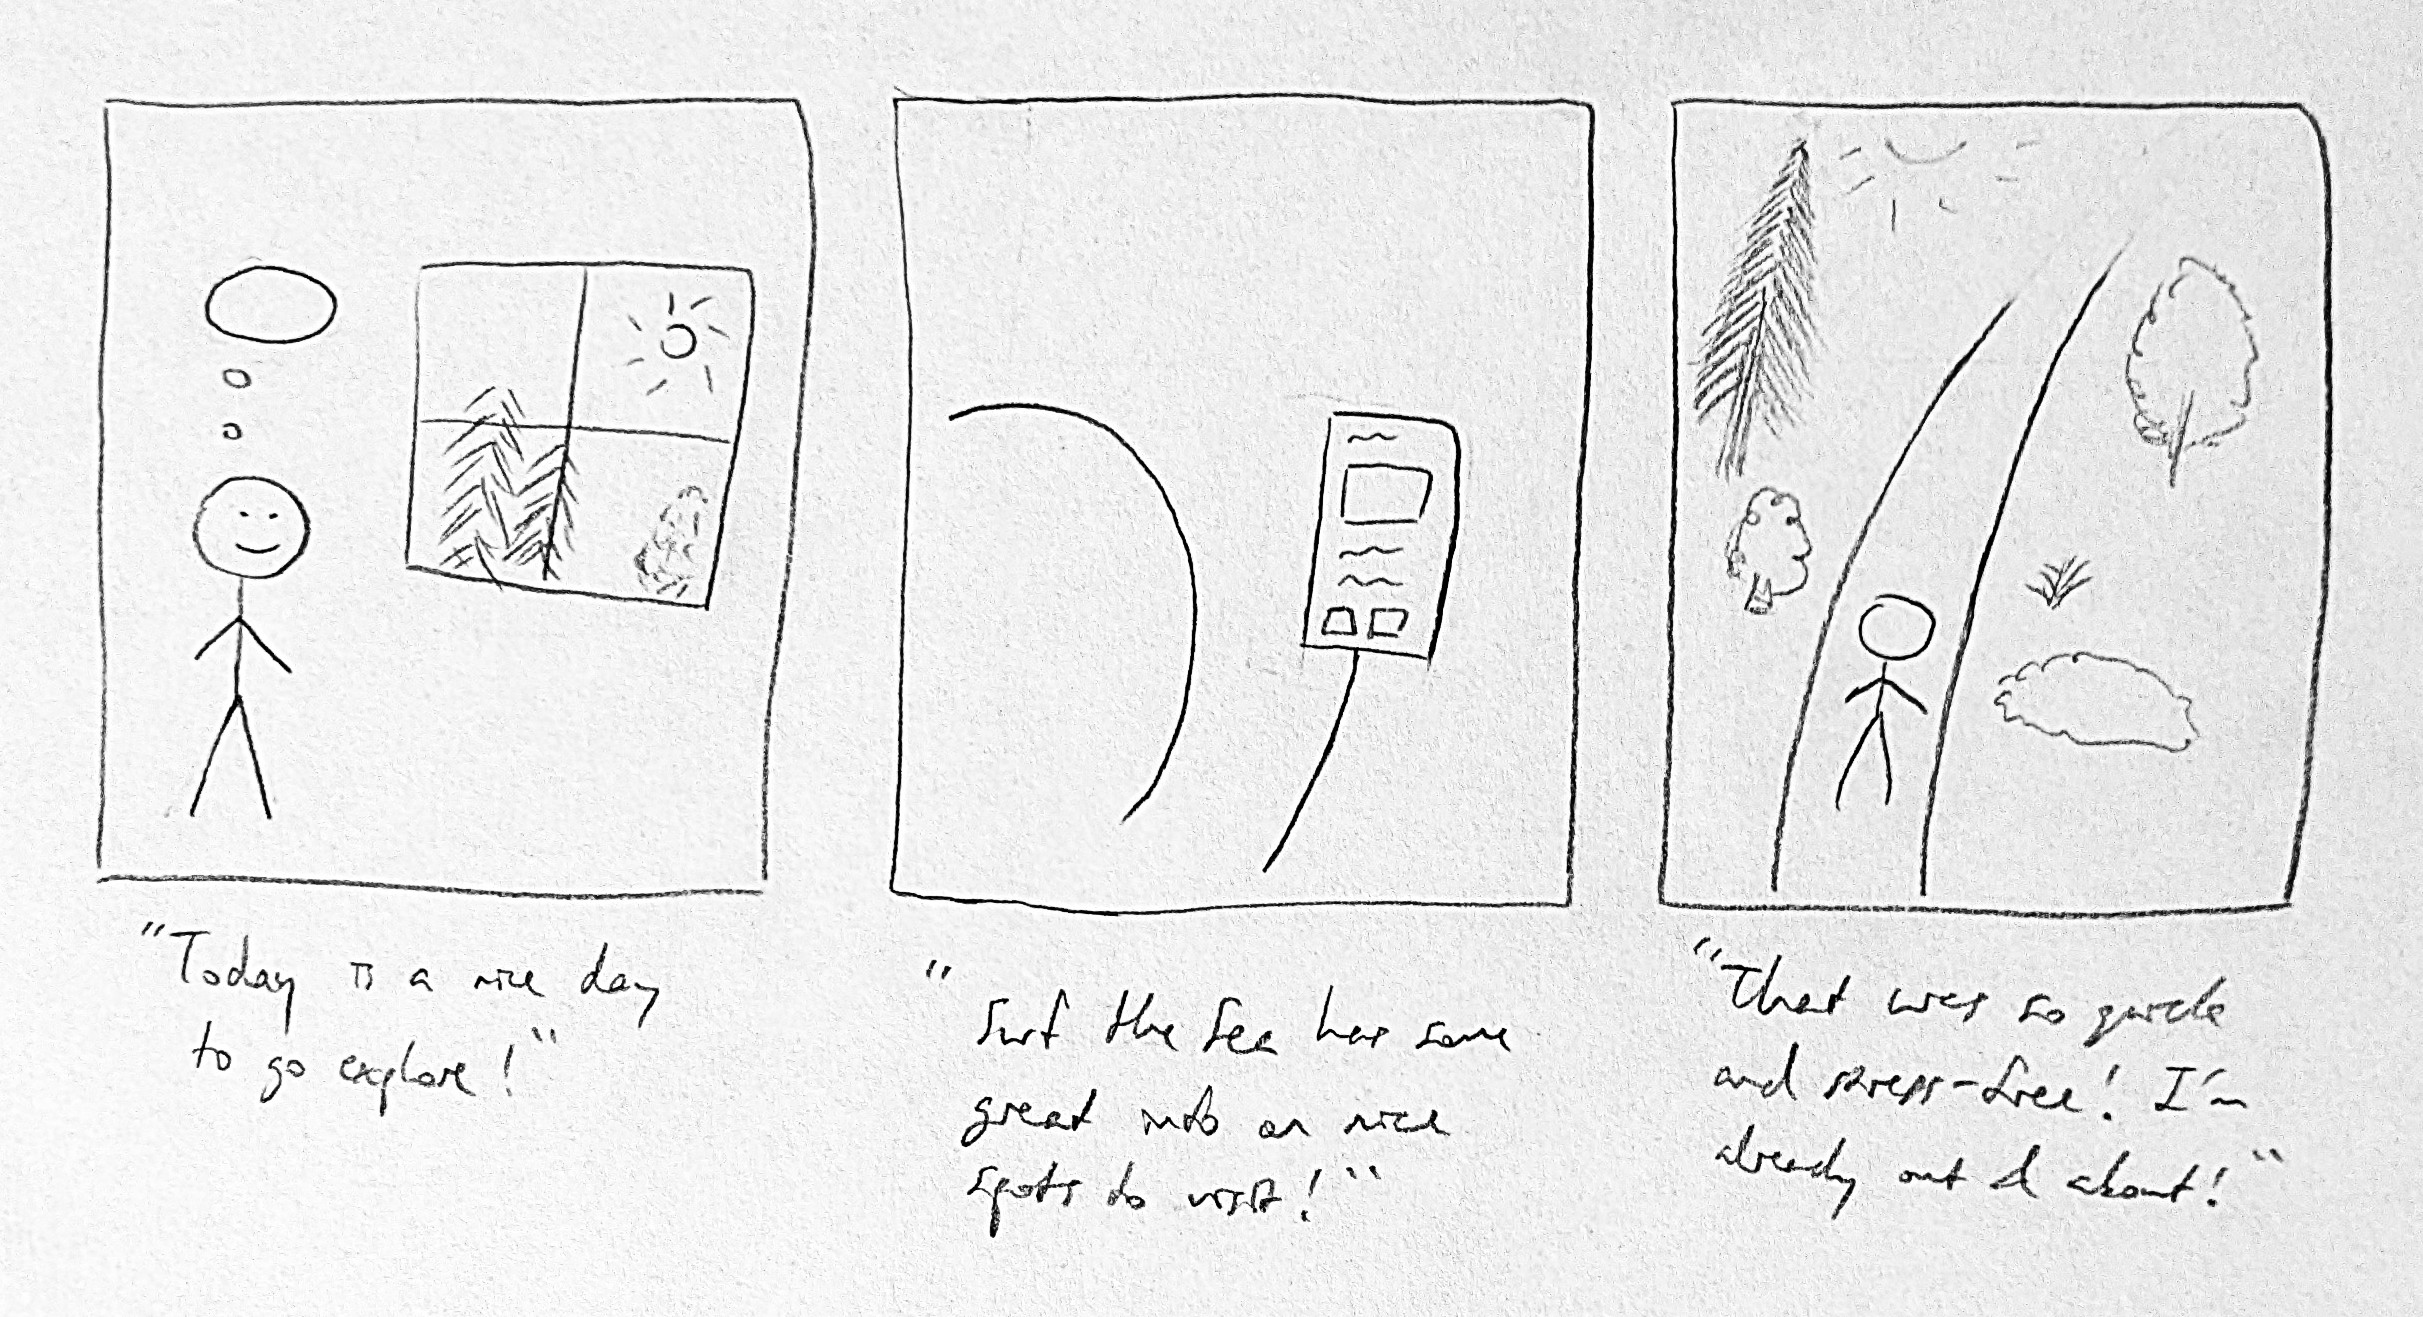 "Today is a nice day
to go explore!"
"
Surf the Sea has some
great info on nice
spots to visit!"
"That was so quick
and stress-free! I'm
already out & about!"